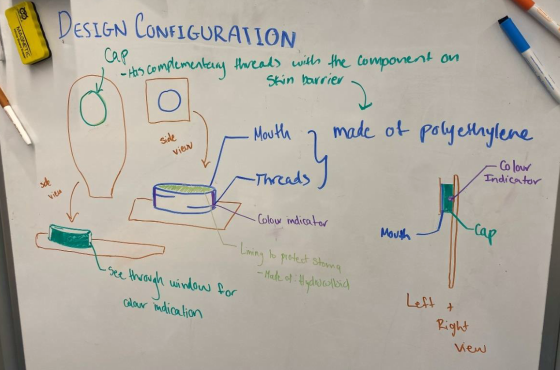 DESIGN CONFIGURATION
Cap
- Has complementary threads with the component on
skin barrier
side
view
Mouth
Threads
made of polyethylene
side
view
Colour indicator
Lining to protect stoma
- Made of: Hydrocolloid
See through window for
colour indication
Colour
Indicator
Mouth
Cap
Left +
Right
View